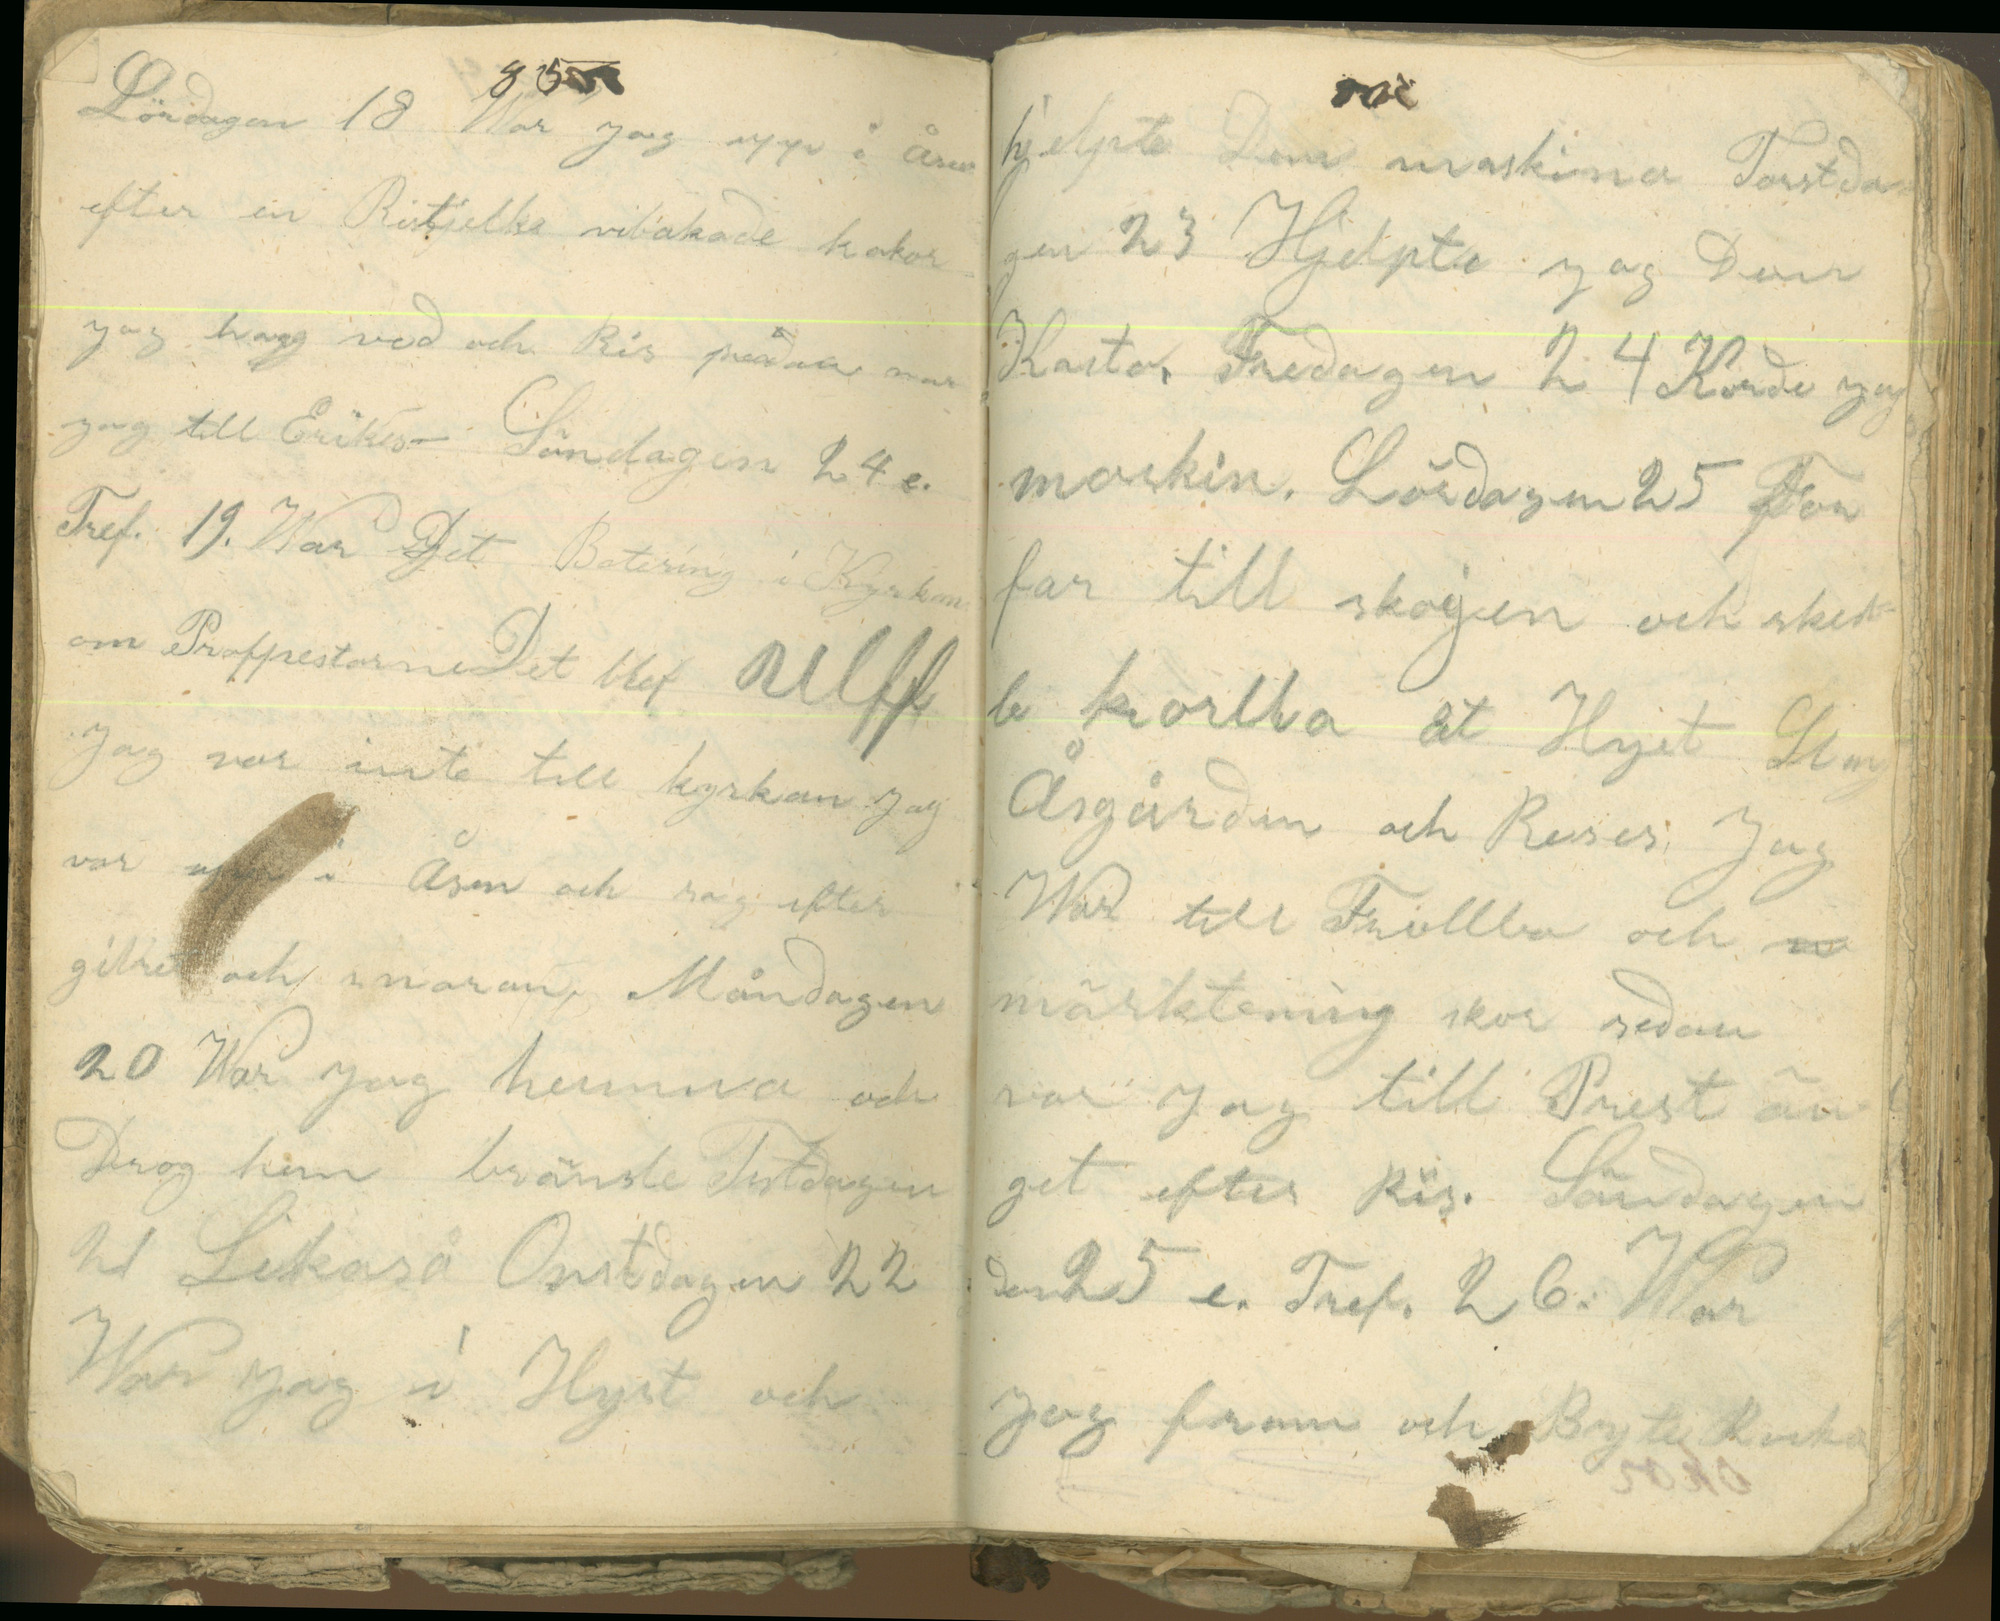 85
Lördagen 18 War jag upp i åsen
efter en Ristjelke vibakade kakor
jag hogg ved och Ris sedan var
jag till Erikes Söndagen 24 e.
Tref. 19. War Det Botering i Kyrkan
om Proffpestarne Det blef Ulff
Jag var inte till kyrkan jag
var i Åsen och såg efter
gilret och snaran, Måndagen
20 War jag hemma och
Drog hem bränsle Tistdagen
21 Likaså Onstdagen 22
War jag i Hyst och
hjelpte Dem maskina Torstda
gen 23 Hjelpte jag Dem
Kasta, Fredagen 24 Körde jag
maskin. Lördagen 25
far till skogen och
korlba åt Hyst
Åsgården och Reser Jag
War till Trollbo och
märktening skor sedan
var jag till Prest än
get efter Ris. Söndagen
den 25 e. Tref. 26. War
jag fram och Byte